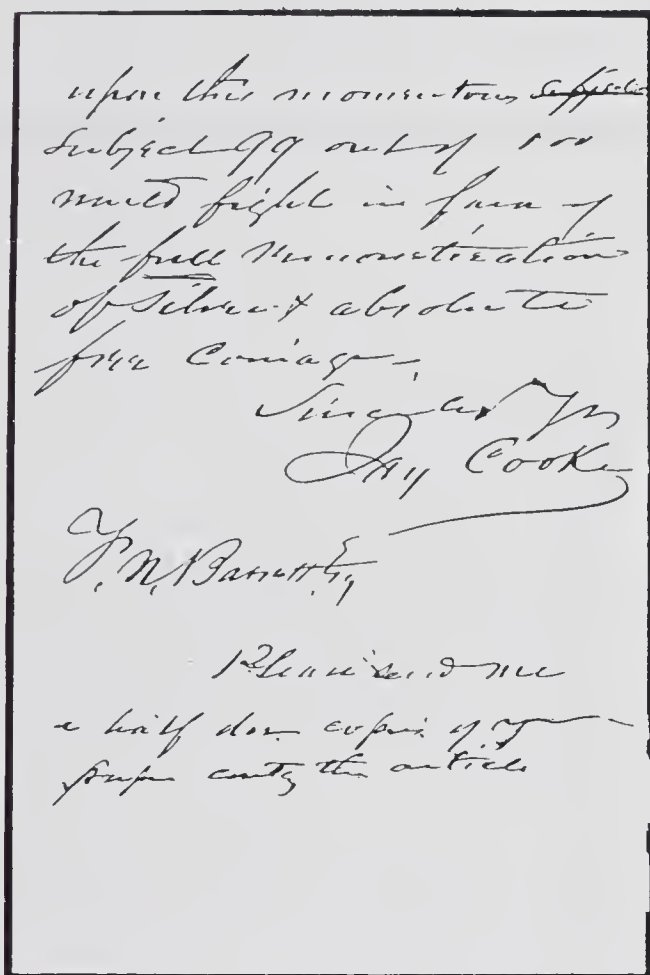 upon this momentous
subject 99 out of 100
would fight in favor of
the full remonetization
of silver & absolute
free coinage.
Sincerely Yrs
Jay Cooke
F. N. Barrett Esq
Please send me
a half doz copies of your
paper contg the article